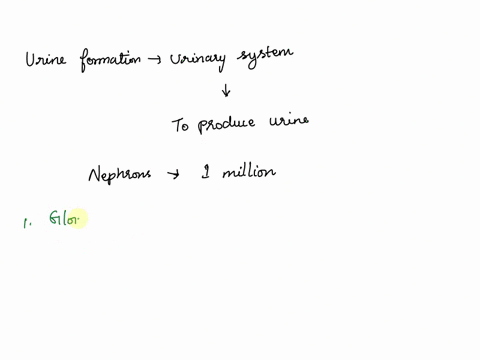 Urine formation → Urinary system
↓
To produce urine
Nephrons → 1 million
1. Glo